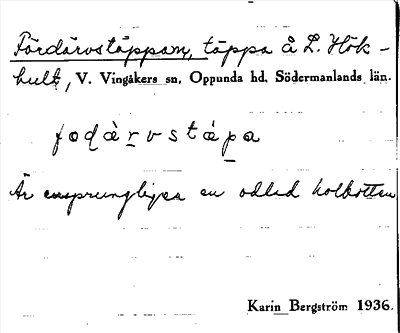 Fördärvstäppam, täppa å L. Hök-
hult, V. Vingåkers sn, Oppunda hd, Södermanlands län.
fodàrvstápa
Är ursprungligen en odlad kolbotten
Karin Bergström 1936.